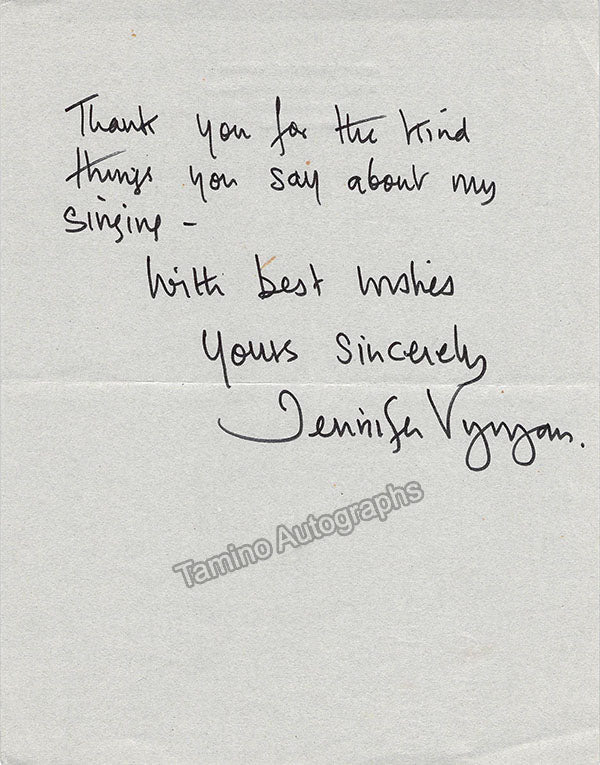 Thank you for the kind
things you say about my
singing -
With best wishes
Yours sincerely
Jennifer Vyvyan.
Tamino Autographs